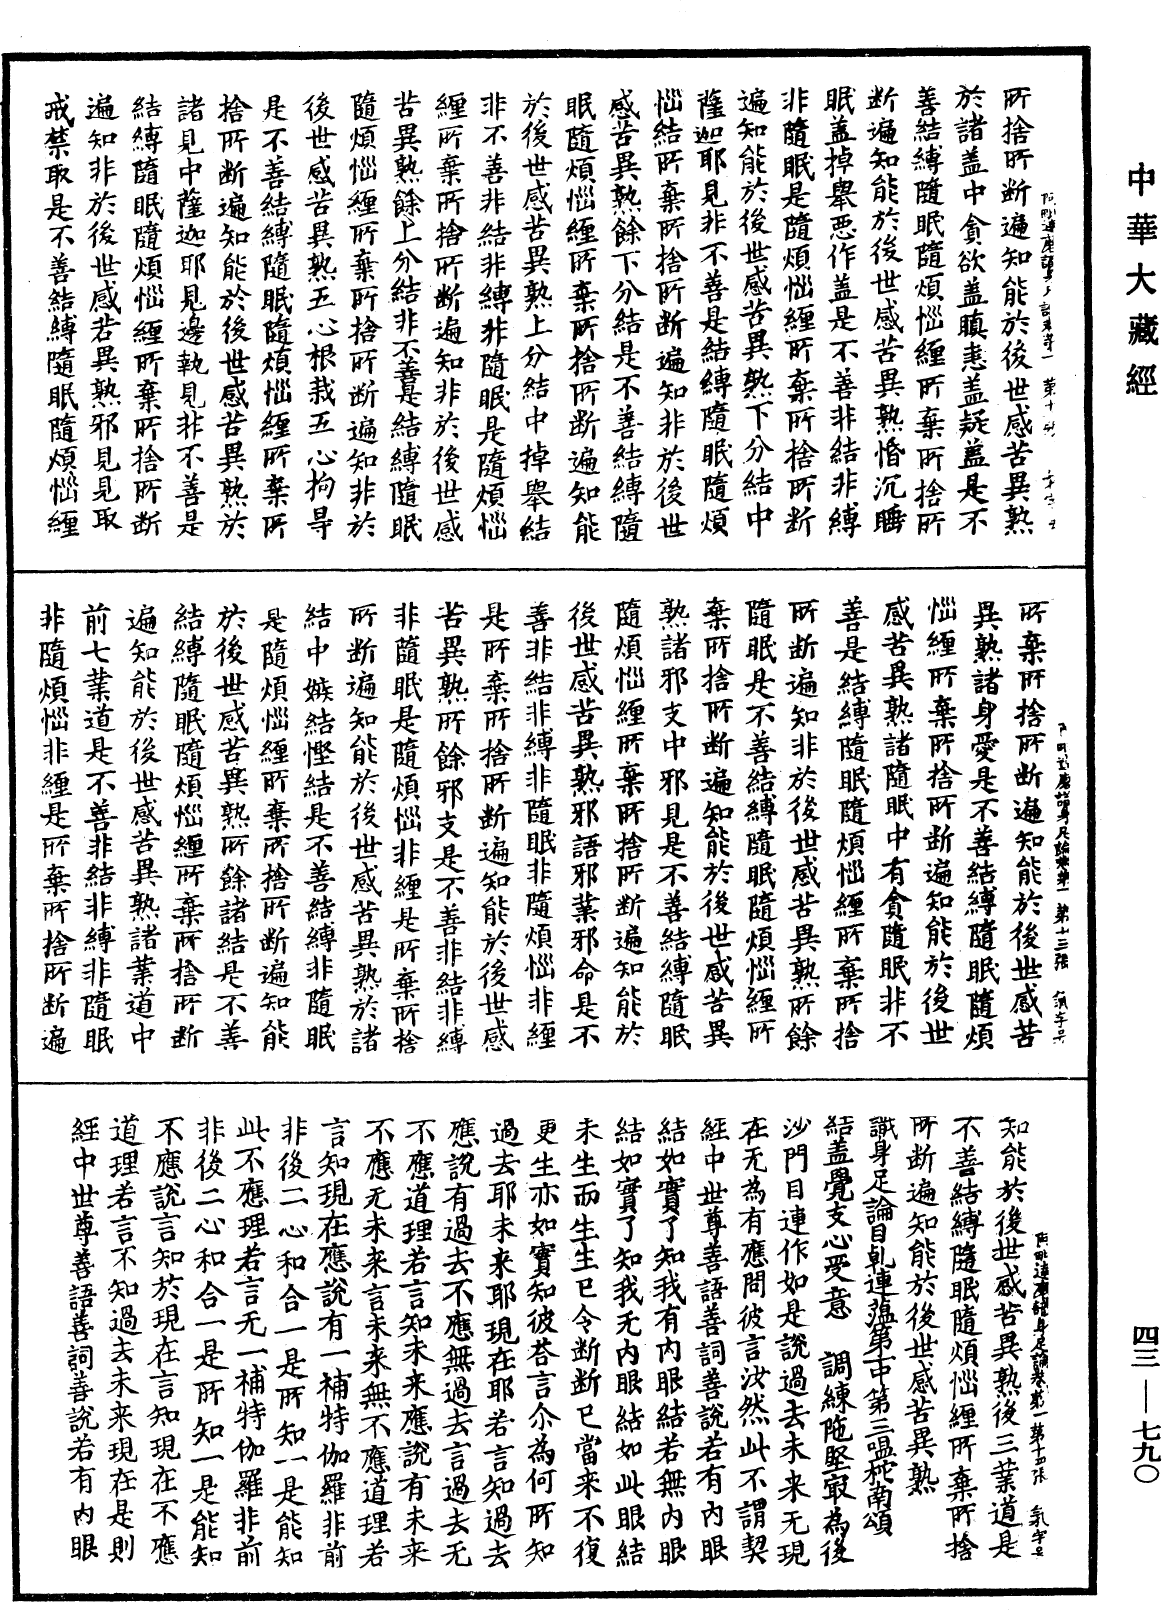 中華大藏經
所捨所断遍知能於後世感苦異熟
於諸盖中貪欲盖瞋恚盖疑盖是不
善結縛隨眠隨煩惱纏所棄所捨所
断遍知能於後世感苦異熟惛沉睡
眠盖掉舉悪作盖是不善非結非縛
非隨眠是隨煩惱纏所棄所捨所断
遍知能於後世感苦異熟下分結中
薩迦耶見非不善是結縛隨眠隨煩
惱結所棄所捨所断遍知非於後世
感苦異熟餘下分結是不善結縛隨
眠隨煩惱纏所棄所捨所断遍知能
於後世感苦異熟上分結中掉舉結
非不善非結非縛非隨眠是隨煩惱
纏所棄所捨所断遍知非於後世感
苦異熟餘上分結非不善是結縛隨眠
隨煩惱纏所棄所捨所断遍知非於
後世感苦異熟五心根栽五心拘导
是不善結縛隨眠隨煩惱纏所棄所
捨所断遍知能於後世感苦異熟於
諸見中薩迦耶見邊執見非不善是
結縛隨眠隨煩惱纏所棄所捨所断
遍知非於後世感苦異熟邪見見取
戒禁取是不善結縛隨眠隨煩惱纏
所棄所捨所断遍知能於後世感苦
異熟諸身愛是不善結縛隨眠隨煩
惱纏所棄所捨所断遍知能於後世
感苦異熟諸隨眠中有貪隨眠非不
善是結縛隨眠隨煩惱纏所棄所捨
所断遍知非於後世感苦異熟所餘
隨眠是不善結縛隨眠隨煩惱纏所
棄所捨所断遍知能於後世感苦異
熟諸邪支中邪見是不善結縛隨眠
隨煩惱纏所棄所捨所断遍知能於
後世感苦異熟邪語邪業邪命是不
善非結非縛非隨眠非隨煩惱非纏
是所棄所捨所断遍知能於後世感
苦異熟所餘邪支是不善非結非縛
非隨眠是隨煩惱非纏是所棄所捨
所断遍知能於後世感苦異熟於諸
結中嫉結慳結是不善結縛非隨眠
是隨煩惱纏所棄所捨所断遍知能
於後世感苦異熟所餘諸結是不善
結縛隨眠隨煩惱纏所棄所捨所断
遍知能於後世感苦異熟諸業道中
前七業道是不善非結非縛非隨眠
非隨煩惱非纏是所棄所捨所断遍
知能於後世感苦異熟後三業道是
不善結縛隨眠隨煩惱纏所棄所捨
所断遍知能於後世感苦異熟
識身足論目乹連藴第一中第三嗢柁南頌
結盖覺支心受意　調練陁堅寂為後
沙門目連作如是說過去未来无現
在无為有應問彼言汝然此不謂契
經中世尊善語善詞善說若有內眼
結如實了知我有內眼結若無內眼
結如實了知我无內眼結如此眼結
未生而生生已令断断已當来不復
更生亦如實知彼荅言尒為何所知
過去耶未来耶現在耶若言知過去
應說有過去不應無過去言過去无
不應道理若言知未来應說有未来
不應无未来言未来無不應道理若
言知現在應說有一補特伽羅非前
非後二心和合一是所知一是能知
此不應理若言无一補特伽羅非前
非後二心和合一是所知一是能知
不應說言知於現在言知現在不應
道理若言不知過去未来現在是則
經中世尊善語善詞善說若有內眼
四三—七九〇